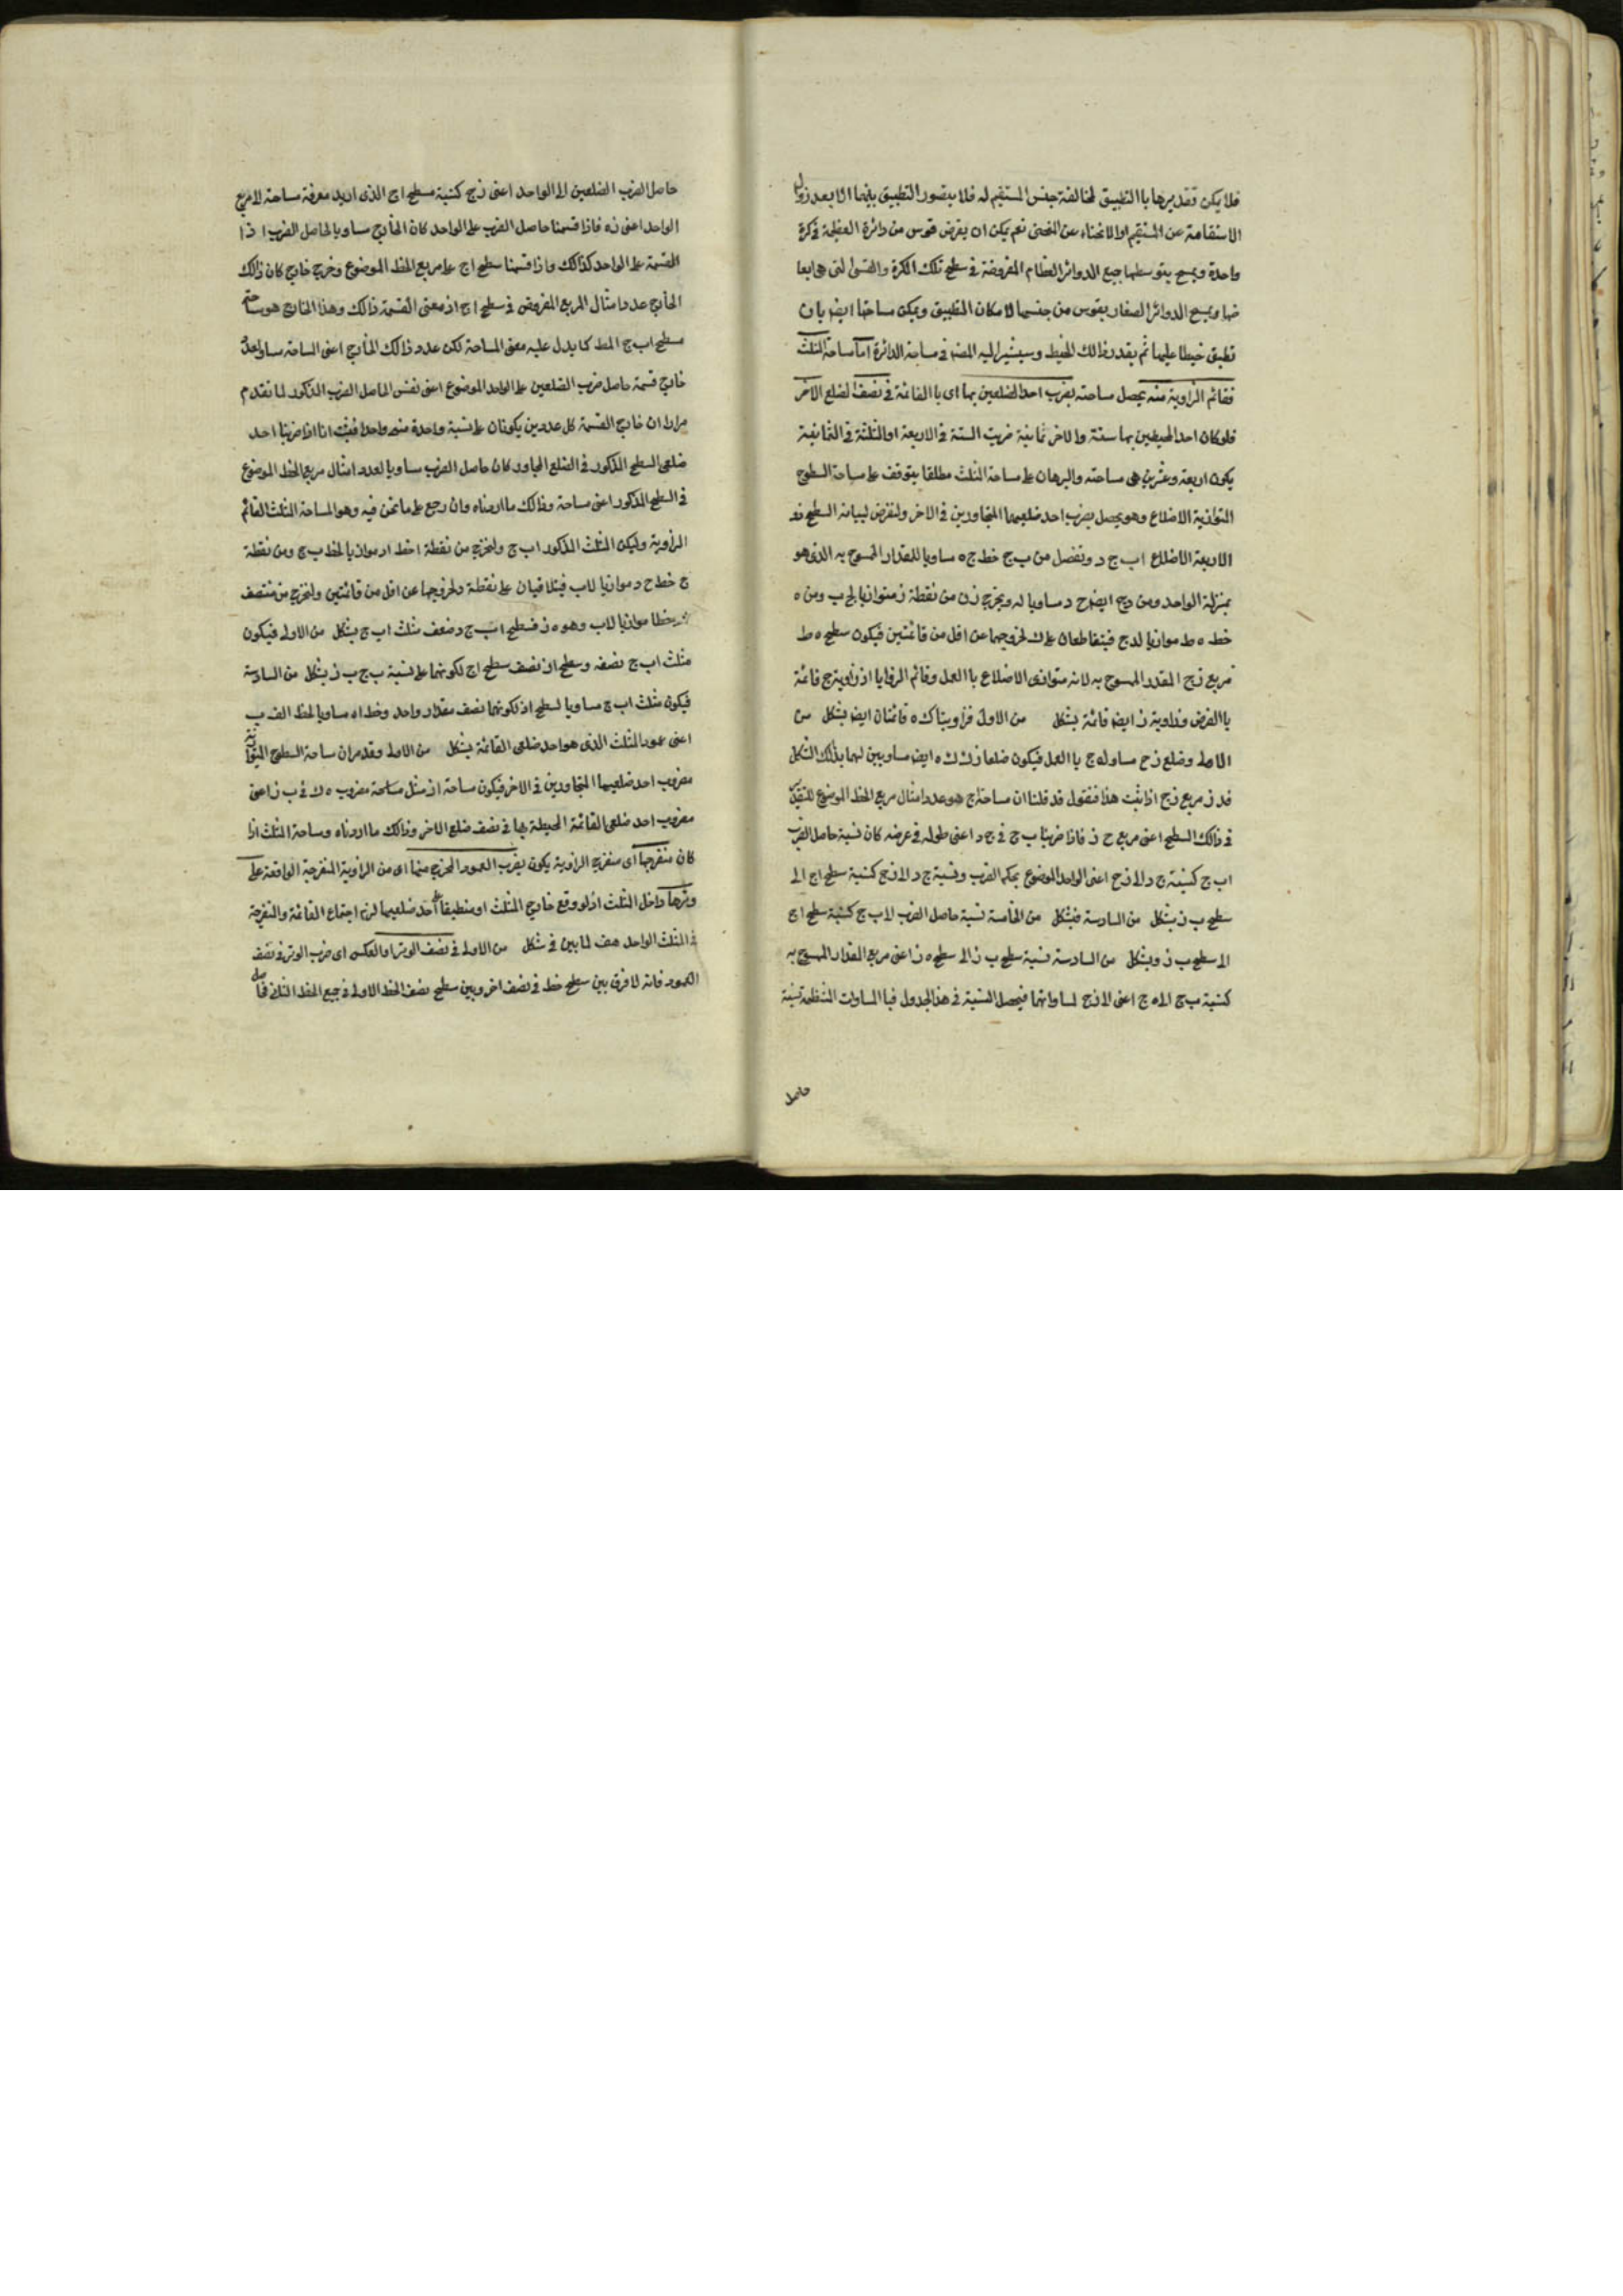 فلا يمكن تقديرها باالتطبيق لمخالفة جنس المستقيم له فلا يتصور التطبيق بينهما الا بعد زوال
الاستقامة عن المستقيم او الانحناء عن المنحنى نعم يمكن ان يفرض قوس من دائرة العظيمة فى كرة
واحدة ويمسح بتوسطها جميع الدوائر العظام المفروضة فى سطح تلك الكرة والقسى التى هى ابعا
ضها ويمسح الدوائر الصغار بقوس من جنسها لامكان التطبيق ويمكن مساحتها ايضا بان
تطبق خيطا عليها ثم يقدر ذالك الخيط وسيشير اليه المصنف فى مساحة الدائرة اما مساحة المثلث
فقائم الزاوية منه يحصل مساحته بضرب احد الضلعين بها اى باالقائمة فى نصف الضلع الاخر
فلو كان احد المحيطين بها ستة والاخر ثمانية ضربت الستة فى الاربعة او الثلثة فى الثمانية
يكون اربعة وعشرين هى مساحته والبرهان على مساحة المثلث مطلقا يتوقف على مساحة السطوح
المتوازية الاضلاع وهو يحصل بضرب احد ضلعيها المتجاورين فى الاخر ولنفرض لبيانه السطح ذو
الاربعة الاضلاع اب ج د ونفصل من ب ج خط ج ه مساويا للمقدار الممسوح به الذى هو
بمنزلة الواحد ومن دج ايضا ح د مساويا له ويخرج زن من نقطة ز متوازيا لج ب ومن ه
خط ه ط موازيا لدج فيتقاطعان على ك لخروجهما عن اقل من قائمتين فيكون سطح ه ط
مربع زج المقدر الممسوح به لانه متوازى الاضلاع باالعمل وقائم الزوايا اذ زاوية ج قائمة
باالفرض وزاوية ز ايضا قائمة بشكل من الاولى فزاويتا ك ه قائمتان ايضا بشكل من
الاولى وضلع زح مساو له ج باالعمل فيكون ضلعا زك ك ه ايضا مساويين لهما بذلك الشكل
فد ز مربع زج اذا ثبت هذا فنقول قد قلنا ان مساحة اج هو عدد امثال مربع الخط الموضوع للتقدير
فى ذالك السطح اعنى مربع ح ز فاذا ضربنا ب ج فى ج د اعنى طوله فى عرضه كان نسبة حاصل الضرب
اب ج كنسبة ج د الى زح اعنى الواحد الموضوع بحكم الضرب ونسبة ج د الى زج كنسبة سطح اج الى
سطح ب ز بشكل من السادسة فبشكل من الخامسة نسبة حاصل الضرب لاب ج كنسبة سطح اج
الى سطح ب ز وبشكل من السادسة نسبة سطح ب ز الى سطح ه ز اعنى مربع المقدار الممسوح به
كنسبة ب ج الى ه ج اعنى الى زج لمساواتهما فيحصل النسبة فى هذا الجدول فبا المساوات المنتظمة نسبة
حاصل
حاصل الضرب الضلعين الى الواحد اعنى زج كنسبة مسطح اج الذى اريد معرفة مساحة لامربع
الواحد اعنى زه فاذا قسمنا حاصل الضرب على الواحد كان الخارج مساويا لحاصل الضرب اذا
القسمة على الواحد كذالك واذا قسمنا سطح اج على مربع الخط الموضوع وخرج خارج كان ذالك
الخارج عدد امثال المربع المفروض فى سطح اج اذ معنى القسمة ذالك وهذا الخارج هو مساحة
مسطح اب ج المط كما يدل عليه معنى المساحة لكن عدد ذالك الخارج اعنى المساحة مساو لعدد
خارج قسمة حاصل ضرب الضلعين على الواحد الموضوع اعنى نفس الحاصل الضرب المذكور لما تقدم
مرارا ان خارج القسمة كل عددين يكونان على نسبة واحدة منهم واحد فثبت انا اذا ضربنا احد
ضلعى السطح المذكور فى الضلع المجاور كان حاصل الضرب مساويا لعدد امثال مربع الخط الموضوع
فى السطح المذكور اعنى مساحة وذالك ما اردناه وان رجع على ما نحن فيه وهو المساحة المثلث القائم
الزاوية وليكن المثلث المذكور اب ج ولنخرج من نقطة ا خط اد موازيا لخط ب ج ومن نقطة
ج خط ح د موازيا لاب فيتلاقيان على نقطة د لخروجهما عن اقل من قائمتين ولنخرج من منتصف
خطا موازيا لاب وهو ه ز فسطح اب ج د ضعف مثلث اب ج بشكل من الاولى فيكون
مثلث اب ج نصفه وسطح از نصف سطح اج لكونهما على نسبة ب ج ب ز بشكل من السادسة
فيكون مثلث اب ج مساويا لسطح از لكونهما نصف مقدار واحد وخط اه مساويا لخط الف ب
اعنى عمود المثلث الذى هو احد ضلعى القائمة بشكل من الاولى وقد مر ان مساحة السطوح المتوازية
مضروب احد ضلعيها المتجاورين فى الاخر فيكون مساحة از مثل مساحة مضروب ه ك فى ب ز اعنى
مضروب احد ضلعى القائمة المحيطة بها فى نصف ضلع الاخر وذالك ما اردناه ومساحة المثلث اذا
كان منفرجها اى منفرج الزاوية يكون بضرب العمود المخرج منها اى من الزاوية المنفرجة الواقعة على
وترها داخل المثلث اذ لو وقع خارج المثلث او منطبقا على احد ضلعيها لزم اجتماع القائمة والمنفرجة
فى المثلث الواحد هف لما بين فى شكل من الاولى فى نصف الوتر او العكس اى ضرب الوتر فى نصف
العمود فانه لا فرق بين سطح خط فى نصف اخر وبين سطح نصف الخط الاول فى جميع الخط الثانى